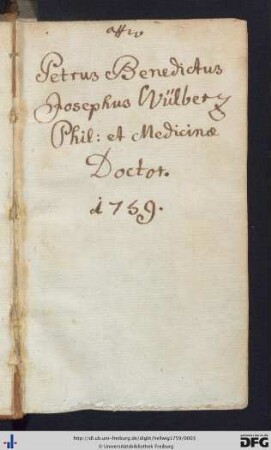 Petrus Benedictus
Josephus Wülberz
Phil: et Medicinæ
Doctor.
1759.
http://dl.ub.uni-freiburg.de/diglit/hellwig1759/0003
© Universitätsbibliothek Freiburg
gefördert durch die
DFG